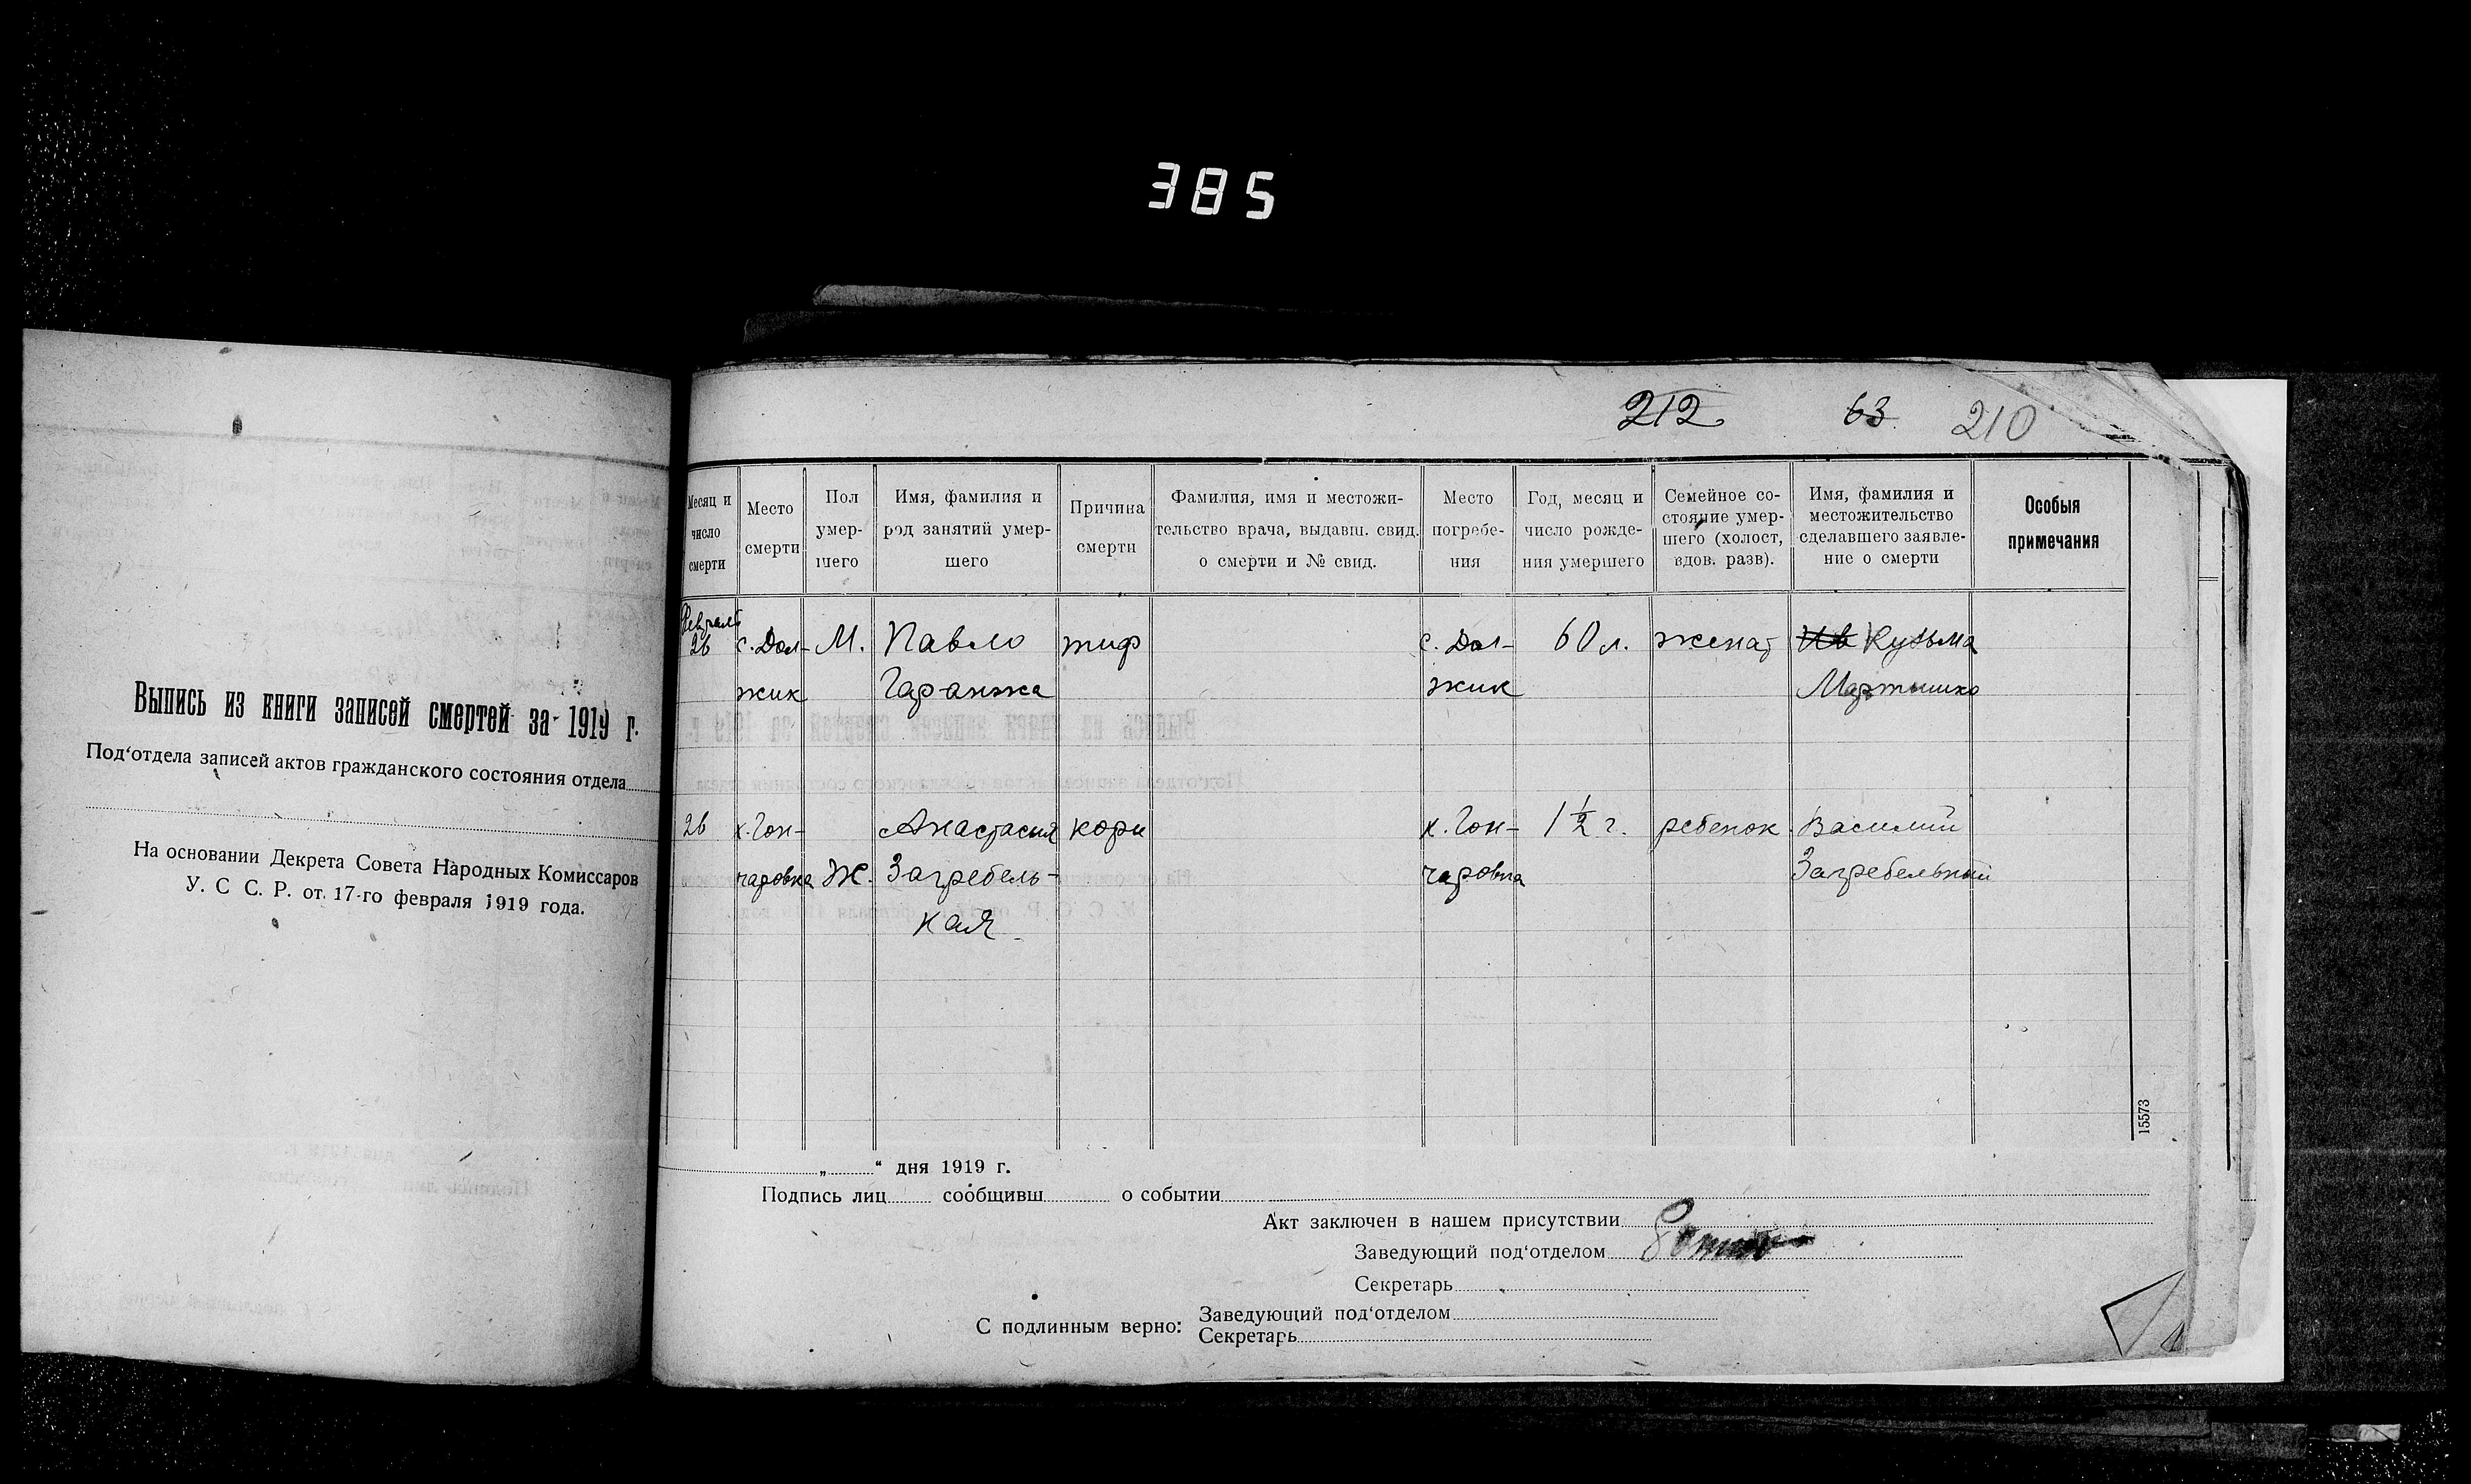 385
Выпись из книги записей смертей за 1919 г.
Под‘отдела записей актов гражданского состояния отдела
На основании Декрета Совета Народных Комиссаров
У. С С. Р. от. 17-го февраля 1919 года.
212 63 210
Месяц и число смерти
Место смерти
Пол умер-
шего
Имя, фамилия и
род занятий умер-
шего
Причина смерти
Фамилия, имя и местожи-
тельство врача, выдавш. свид.
о смерти и № свид.
Место
погребе-
ния
Год, месяц и
число рожде-
ния умершего
Семейное со-
стояние умер-
шего (холост,
вдов. разв).
Имя, фамилия и
местожительство
сделавшего заявле-
ние о смерти
Особыя
примечания
Февраль
26 с. Дол- М. Павло тиф с. Дол- 60 л. женат Ив Кузьма
жик Гаранжа жик Мартышко
26 х. Гон- Анастасия кори х. Гон- 1 ½ г. ребенок Василий
чаровка Ж. Загребель- чаровка Загребельный
ная
15573
„ “ дня 1919 г.
Подпись лиц сообщивш о событии
Акт заключен в нашем присутствии
Заведующий под‘отделом
Секретарь
С подлинным верно: Заведующий под‘отделом
Секретарь